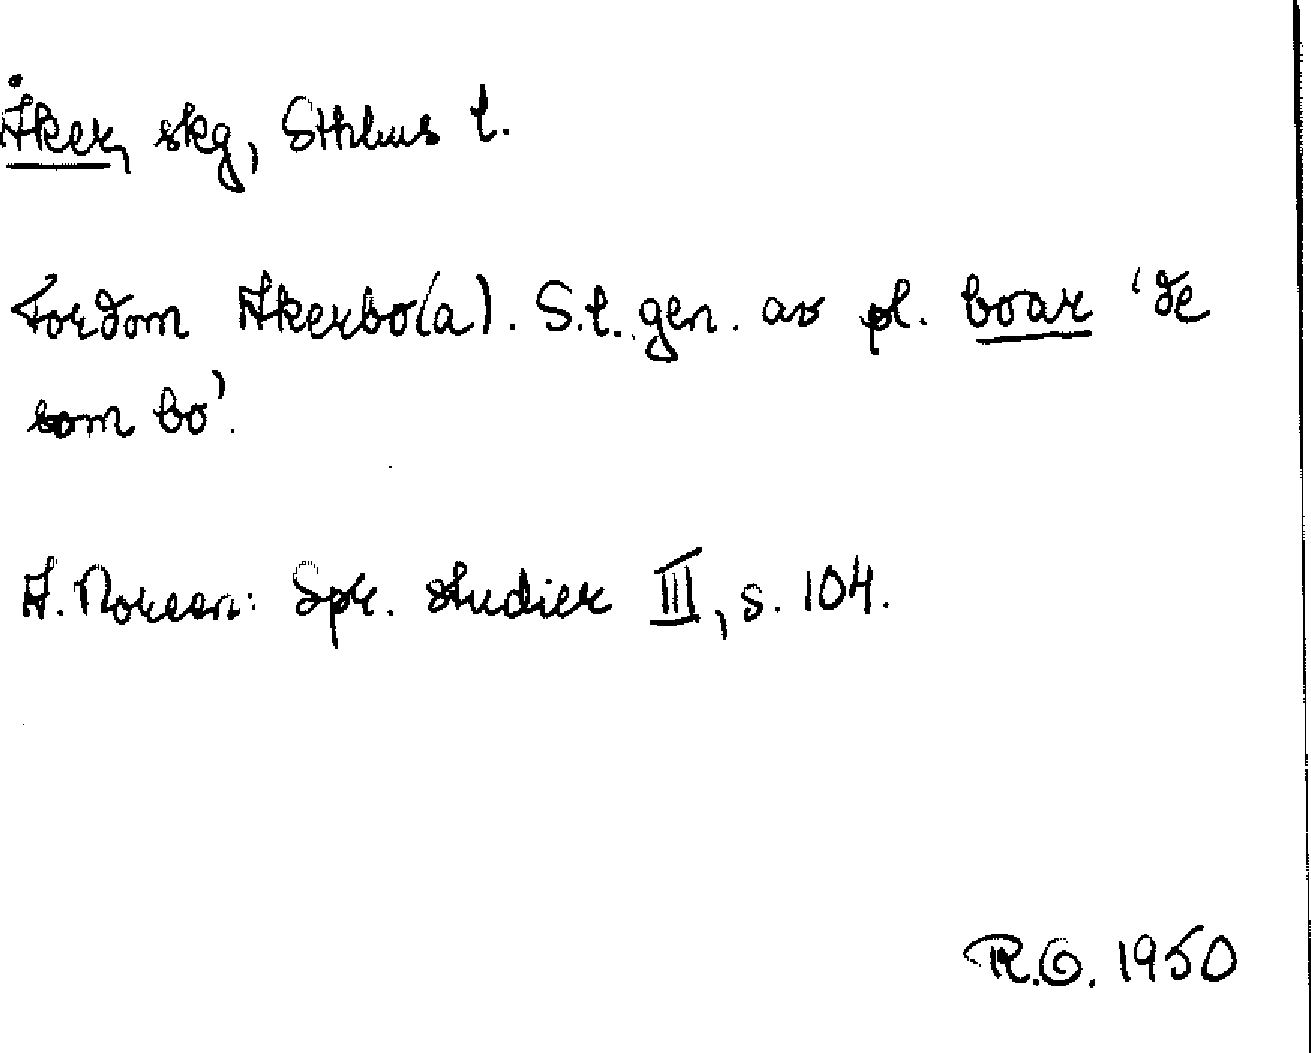 Åker, skg, Sthlms l.
Fordom Akerbo(a). S.l. gen. av pl. boar 'de
som bo'.
A. Noreen: Spr. studier III, s. 104.
R.O. 1950